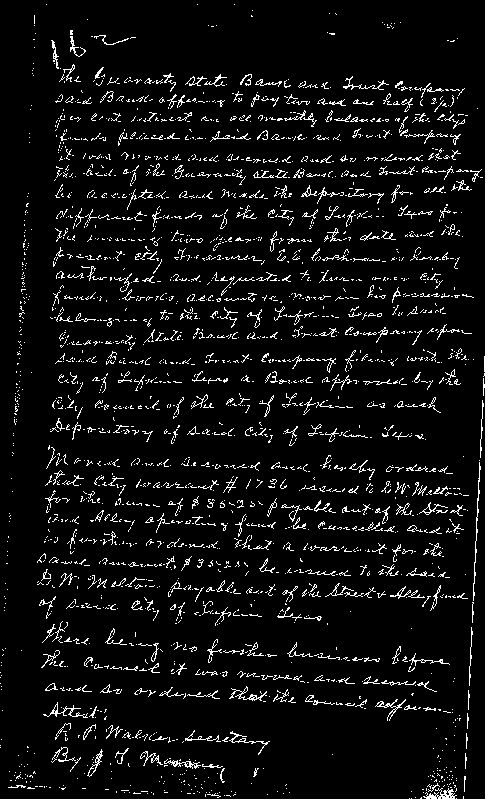 162
The Guaranty State Bank and Trust Company
said Bank offering to pay two and one half (2½)
per cent interest on all monthly balances of the City's
funds placed in said Bank and Trust Company
it was moved and seconed and so ordered that
the bid of the Guaranty State Bank and Trust Company
be accepted and made the Depository for all the
different funds of the City of Lufkin Texas for
the insuing two years from this date and the
present city Treasurer, Cochran is hereby
authorized and requested to turn over city
funds, books, accounts &c, now in his possession
belonging to the City of Lufkin Texas to said
Guaranty State Bank and Trust Company upon
said Bank and Trust Company filing with the
City of Lufkin Texas a Bond approved by the
City Council of the City of Lufkin as such
Depository of said City of Lufkin Texas
Moved and seconed and hereby ordered
that City warrant # 1736 issued to G.W. Melton
for the sum of $35.25 payable out of the Street
and Alley operating fund be cancelled and it
is further ordered that a warrant for the
same amount, $35.25, be issued to the said
G. W. Melton payable out of the Street & Alley fund
of said City of Lufkin Texas.
There being no further business before
the Council it was moved and seconed
and so ordered that the council adjourn
Attest:
R. P. Walker Secretary
By J. T.